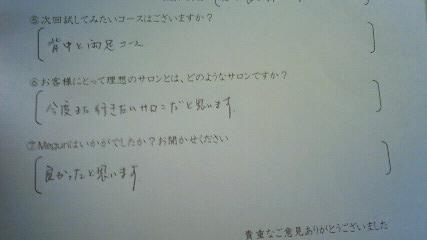 ⑤次回試してみたいコースはございますか?
背中と両足コース
⑥お客様にとって理想のサロンとは、どのようなサロンですか?
今度また行きたいサロンだと思います。
⑦Megunはいかがでしたか?お聞かせください
良かったと思います
貴重なご意見ありがとうございました